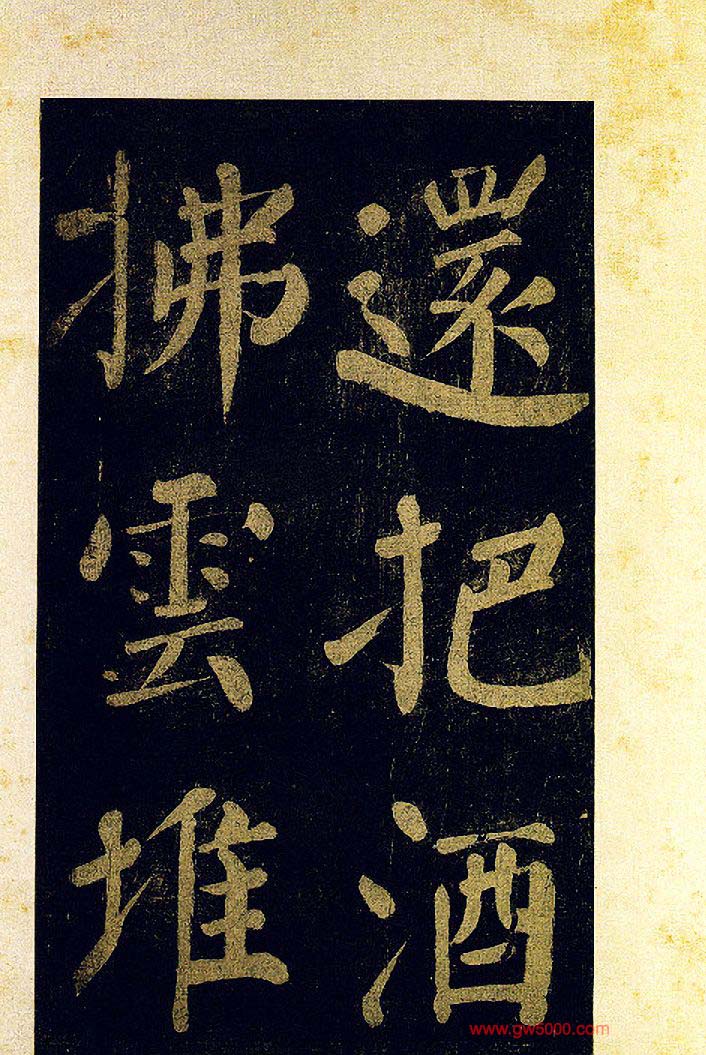 還把酒
拂雲堆
www.gw5000.com